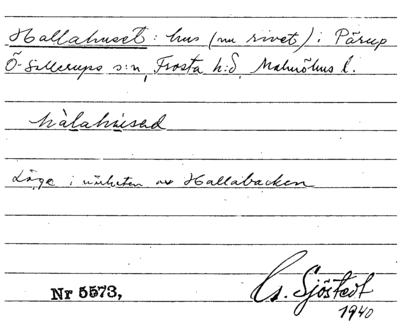 Hallahuset: hus (nu rivet) i Pärup
Ö-Sallerups s:n, Frosta h:d, Malmöhus l.
hàlahu̇sed
Läge i närheten av Hallabacken
Nr 5573,
G. Sjöstedt
1940